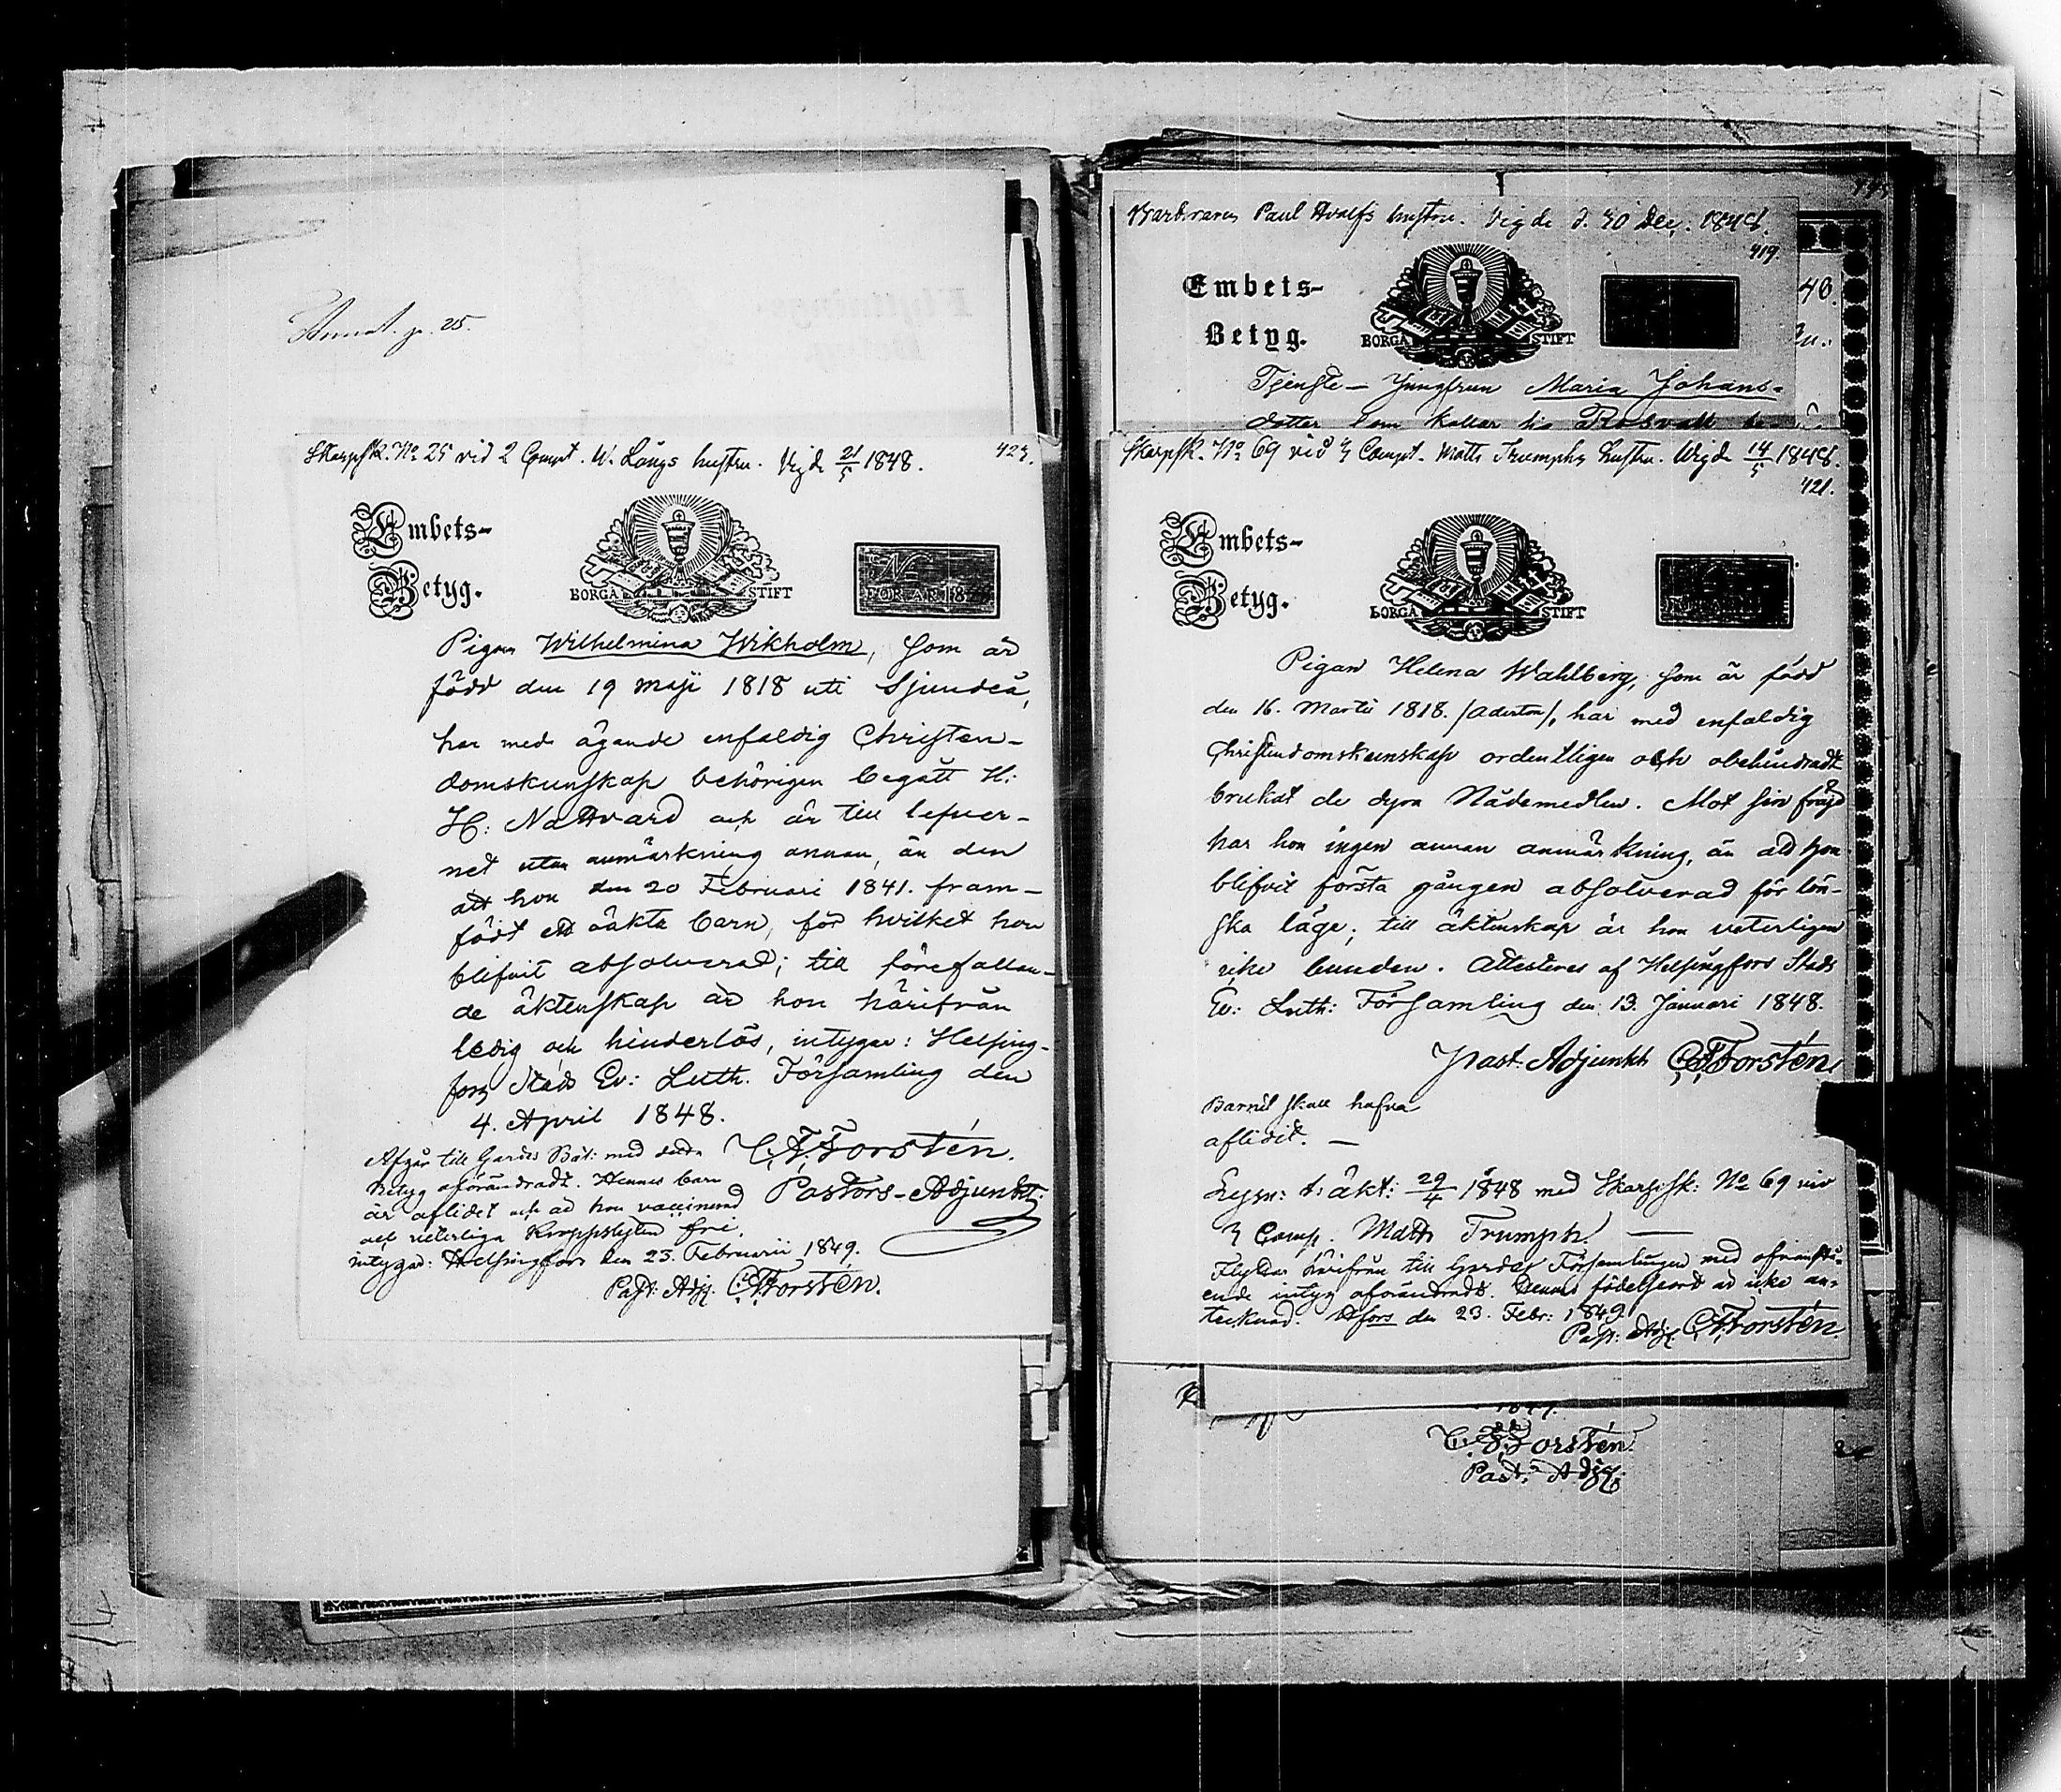 Annot. p. 25.
Skarpsk. No 25 vid 2 Compt. W. Långs hustru. Vigde 21/5 1848.
423.
Embets-
Betyg.
BORGÅ STIFT
No
FÖR ÅR 18
Pigan Wilhelmina Wikholm, som är
född den 19 Maji 1818 uti Sjundeå,
har med ägande enfaldig Christen-
domskunskap behörigen begått H:
H: Nattvard och är till lefver-
net utan anmärkning annan, än den
att hon den 20 Februari 1841. fram-
födt ett oäkta barn, för hvilket hon
blifvit absolverad; till förefallan-
de äktenskap är hon härifrån
ledig och hinderlös, intygar: Helsing-
fors Stads Ev: Luth. Församling den
4. April 1848.
C. F. Forstén.
Pastors-Adjunkt.
Afgår till Gardes Bat: med detta
Betyg oförändradt. Hennes barn
är aflidet och är hon vaccinerad
och veterliga Kroppslyten fri,
intygar: Helsingfors den 23. Februarii 1849.
Past: Adj. C. F. Forstén.
Paul Adolfs hustru. Vigde d. 30 Dec. 1848.
419.
Embets-
Betyg.
BORGÅ STIFT
Tjenste-Jungfrun Maria Johans-
dotter som kallar sig Rosvall
40.
Skarpsk. No 69 vid 3 Compt. Matts Trumphs hustru. Wigde 14/5 1848.
421.
Embets-
Betyg.
BORGÅ STIFT
Pigan Helena Wahlberg, som är född
den 16. Martii 1818. /Aderton/, har med enfaldig
Christendomskunskap ordentligen och obehindradt
brukat de dyra Nådemedlen. Mot sin frägd
har hon ingen annan anmärkning, än att hon
blifvit första gången absolverad för lön-
ska läge; till äktenskap är hon veterligen
icke bunden. Attesteras af Helsingfors Stads
Ev: Luth: Församling den 13. Januari 1848.
Past. Adjunkt C. F. Forstén.
Barnet skall hafva
aflidit. —
Lysn: t: äkt: 29/4 1848 med Skarpsk: No 69 vid
3 Comp. Matts Trumph. —
Flyttar härifrån till Gardes Församlingen med ofvanstå-
ende intyg oförändradt. Dennes födelseort är icke an-
tecknad. Hfors den 23. Febr: 1849
Past: Adj. C. F. Forstén
C. F. Forstén.
Past: Adj.